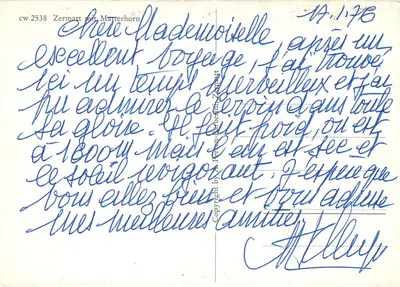 cw 2538 Zermatt mit Matterhorn
17.1.76
Chère Mademoiselle, après un
excellent voyage, j'ai trouvé
ici un temps merveilleux et j'ai
pu admirer le cervin dans toute
sa gloire. Il fait froid, on est
à 1800m mais l'air est sec et
le soleil revigorant. J'espère que
vous allez bien et vous adresse
mes meilleures amitiés
Copyright